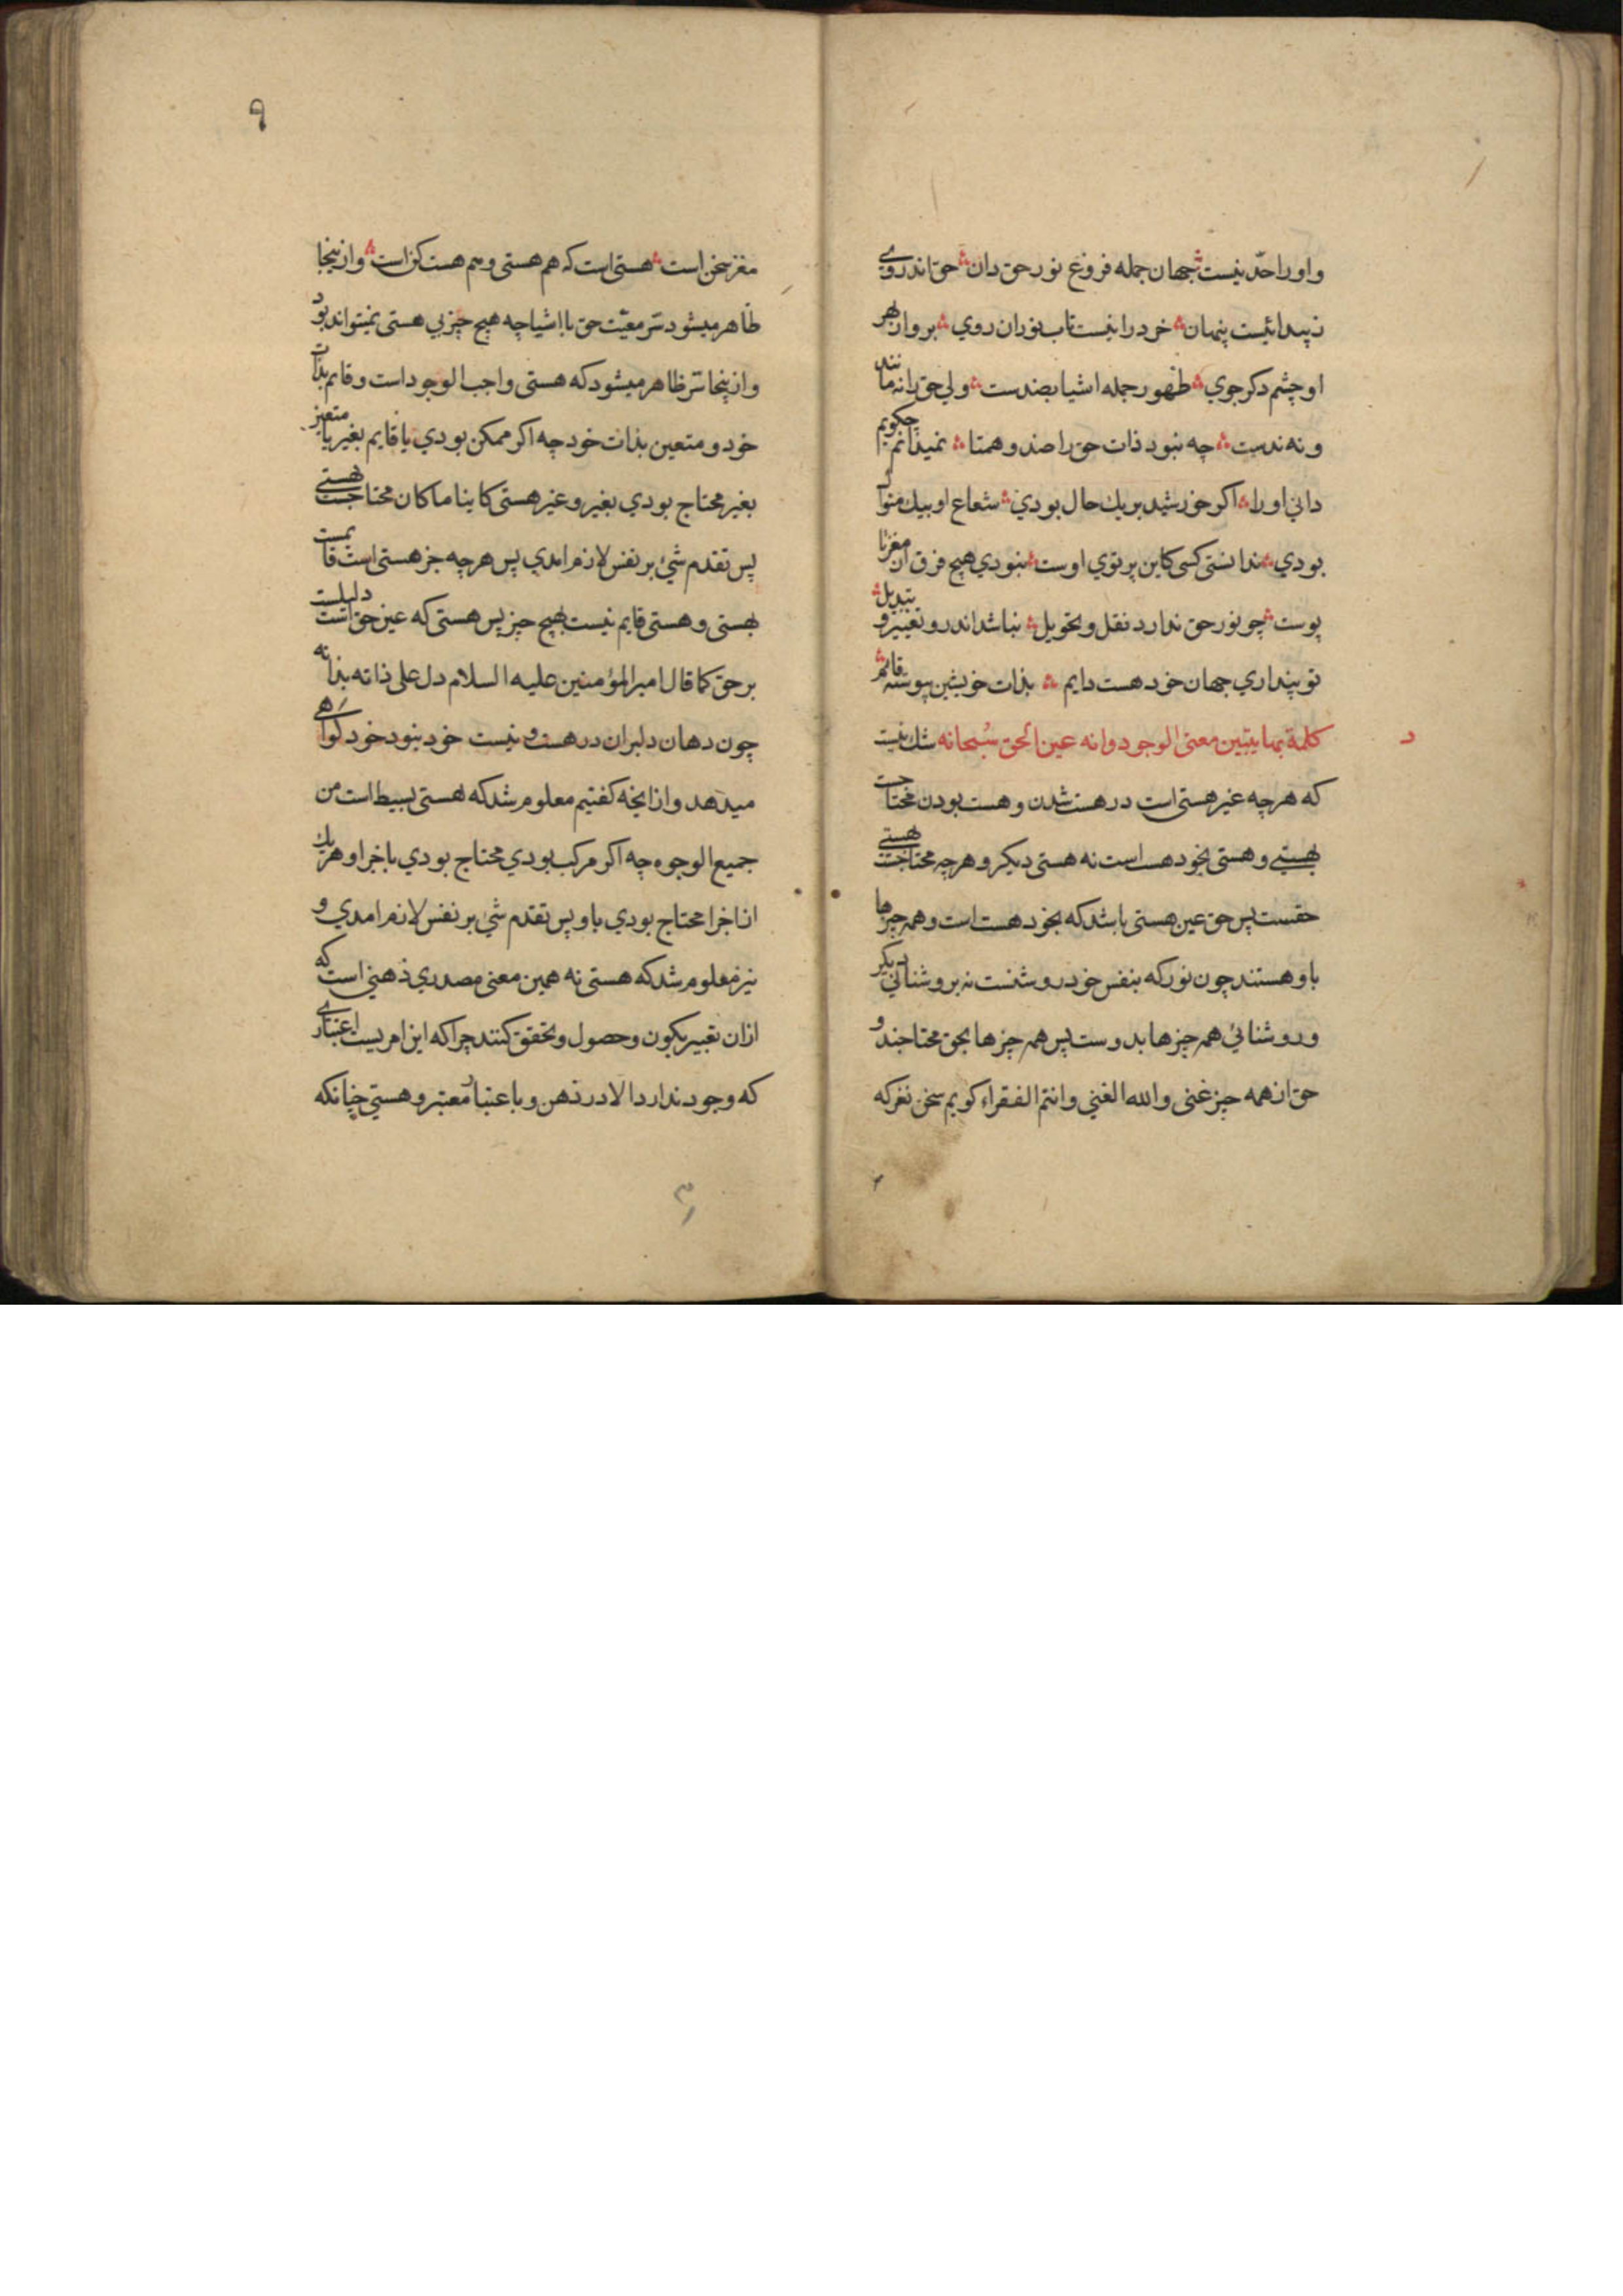 و او را حدّ نیست جهان جمله فروغ نور حق دان حق اندر وی
ز پیدائیست پنهان خرد را نیست تاب نور ان روی برو از بهر
او چشم دکر جوی ظهور جمله اشیا بضدست ولی حق را نه مانند
و نه ندست چه نبود ذات حق را ضد و همتا نمیدانم چکویم
دانی او را اکر خورشید بر یك حال بودی شعاع او بیك منوال
بودی ندانستی کسی کاین پرتوی اوست نبودی هیچ فرق از مغز تا
پوست چو نور حق ندارد نقل و تحویل نباشد اندرو تغییر و تبدیل
تو پنداری جهان خود هست دایم بذات خویشین پیوسته قائم
كلمة بها يتبين معنى الوجود وانه عين الحق سُبحانه شك نیست
که هرچه غیر هستی است در هست شدن و هست بودن محتاجست
بهستی و هستی بخود هست است نه هستی دیکر و هرچه محتاجست بهستی
حقست پس حق عین هستی باشد که بخود هست است و همه چیزها
باو هستند چون نور که بنفس خود روشنست نه بروشنائی دیکر
و روشنائی همه چیزها بدوست پس همه چیزها بحق محتاجند و
حق از همه چیز غنی والله الغني وانتم الفقراء کویم سخن نغز که
٩
مغز سخن است هستی است که هم هستی و هم هست کن است و از ینجا
ظاهر میشود سّر معیّت حق با اشیا چه هیچ چیز بی هستی نمیتواند بود
و از ینجا سّر ظاهر میشود که هستی واجب الوجود است و قایم بذات
خود و متعین بذات خود چه اکر ممکن بودی یا قایم بغیر یا متعین
بغیر محتاج بودی بغیر و غیر هستی کاینا ما کان محتاجست بهستی
پس تقدم شئ بر نفس لازم امدی پس هرچه جز هستی است قایمست
بهستی و هستی قایم نیست بهیچ چیز پس هستی که عین حق است دلیلست
بر حق کما قال امیر المؤمنین علیه السلام دل علی ذاته بذاته
چون دهان دلبران در هست و نیست خود بنود خود کواهی
میدهد و از انچه کفتیم معلوم شد که هستی بسیط است من
جمیع الوجوه چه اکر مرکب بودی محتاج بودی باجزا و هر یك
از اجزا محتاج بودی باو پس تقدم شئ بر نفس لازم امدی و
نیز معلوم شد که هستی نه همین معنی مصدری ذهنی است که
ازان تعبیر بکون و حصول و تحقق کنند چرا که این امریست اعتباری
که وجود ندارد الا در ذهن و باعتبار معتبر و هستی چنانکه